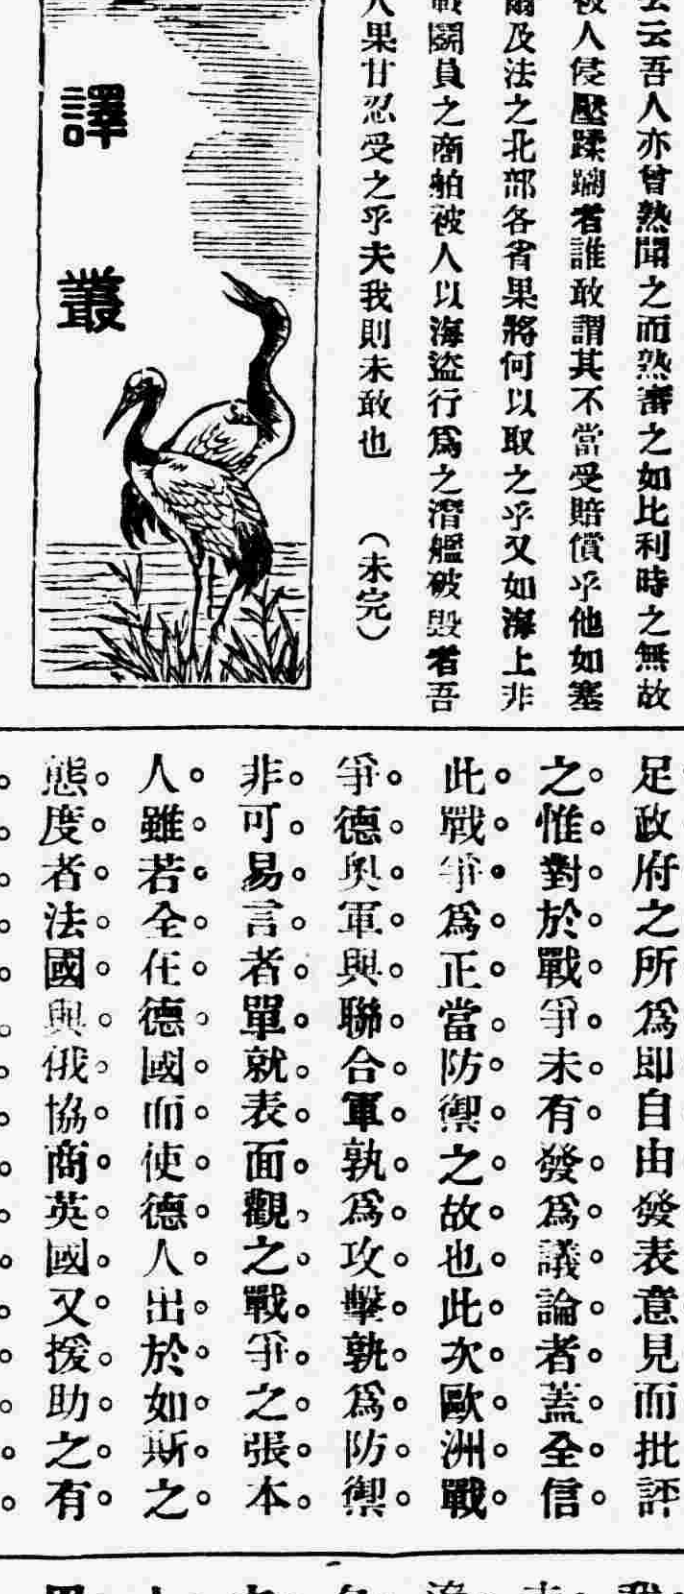 云吾人亦曾熟聞之而熟審之如比利時之無故
被人侵壓蹂躪者誰敢謂其不當受賠償乎他如塞
爾及法之北部各省果將何以取之乎又如海上非
戰鬭員之商舶被人以海盜行爲之潛艦破毀者吾
人果甘忍受之乎夫我則未敢也（未完）
譯叢
足政府之所爲卽自由發表意見而批評
之惟對於戰爭未有發爲議論者蓋全信
此戰爭爲正當防禦之故也此次歐洲戰
爭德奧軍與聯合軍孰爲攻擊孰爲防禦
非可易言者單就表面觀之戰爭之張本
人雖若全在德國而使德人出於如斯之
態度者法國與俄協商英國又援助之有